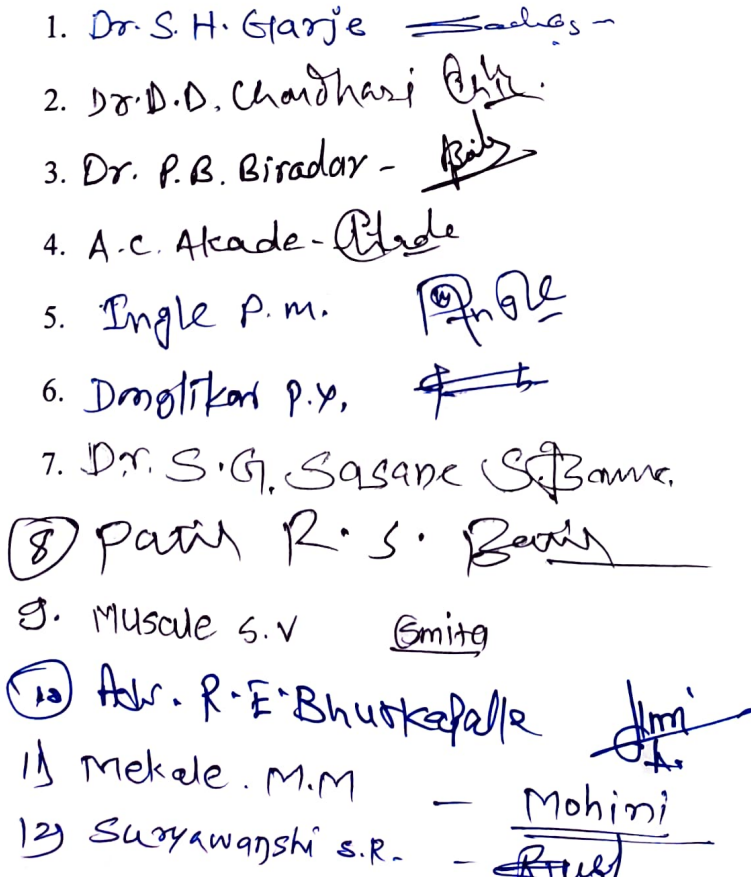 1. Dr. S. H. Garje
2. Dr. D. D. Chaudhari
3. Dr. P. B. Biradar -
4. A. C. Akade - Akade
5. Ingle P. M. Ingle
6. P. Y.
7. Dr. S. G. Sasane
8 Patil R. S.
9. Muscule S. V Smita
10 Adv. R. E. Bhurkapalle
11) Mekale. M. M - Mohini
12) Suryawanshi S. R. -